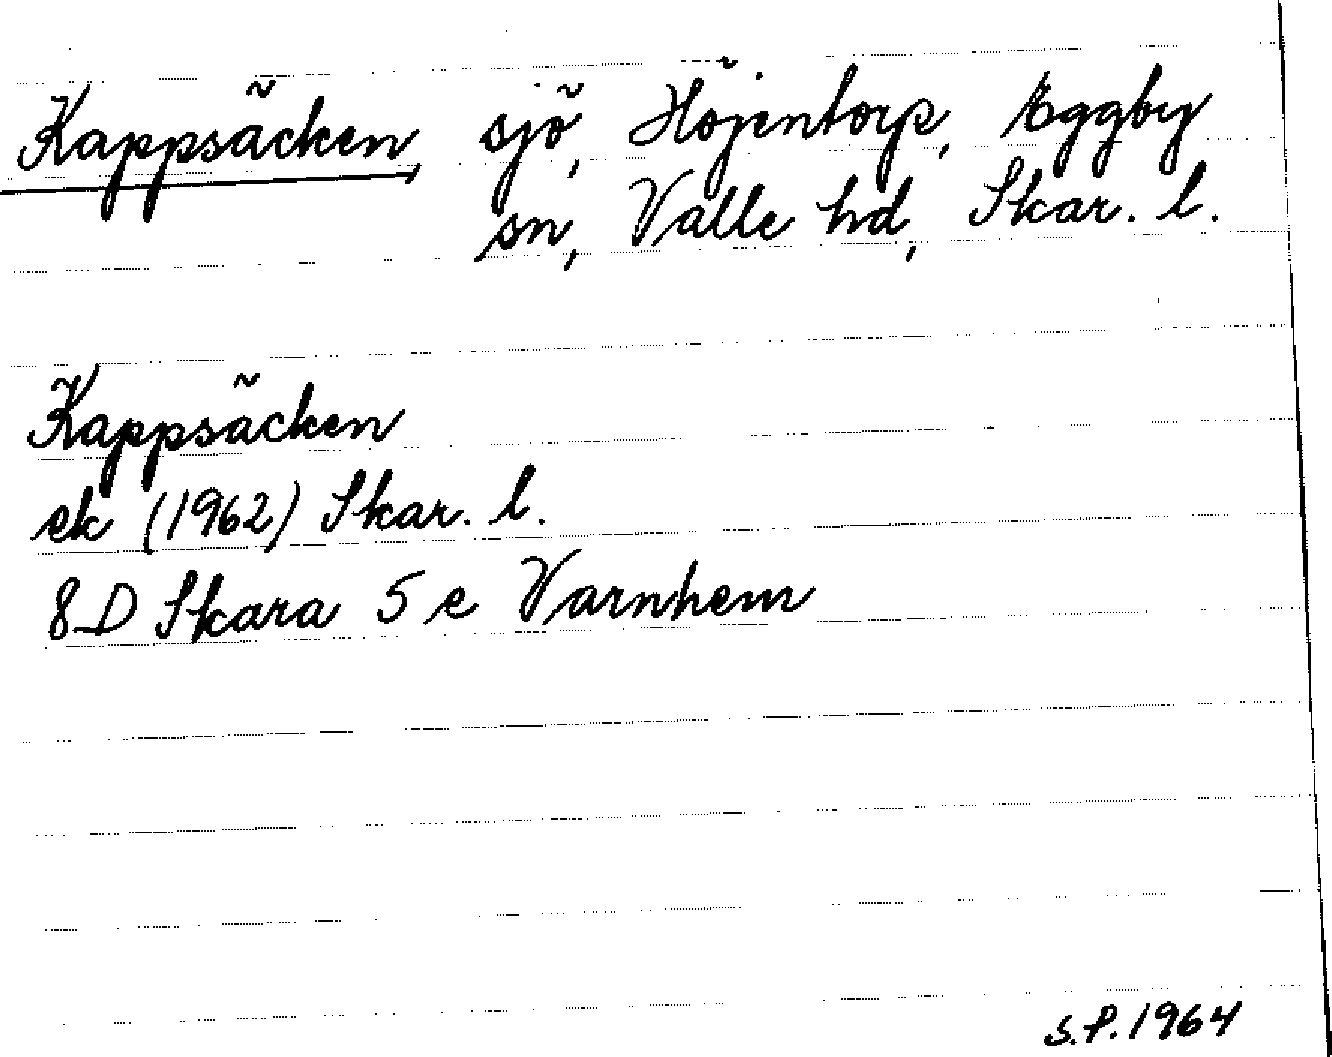 Kappsäcken, sjö, Höjentorp, Eggby
sn, Valle hd, Skar. l.
Kappsäcken
ek (1962) Skar. l.
8D Skara 5e Varnhem
S.P. 1964